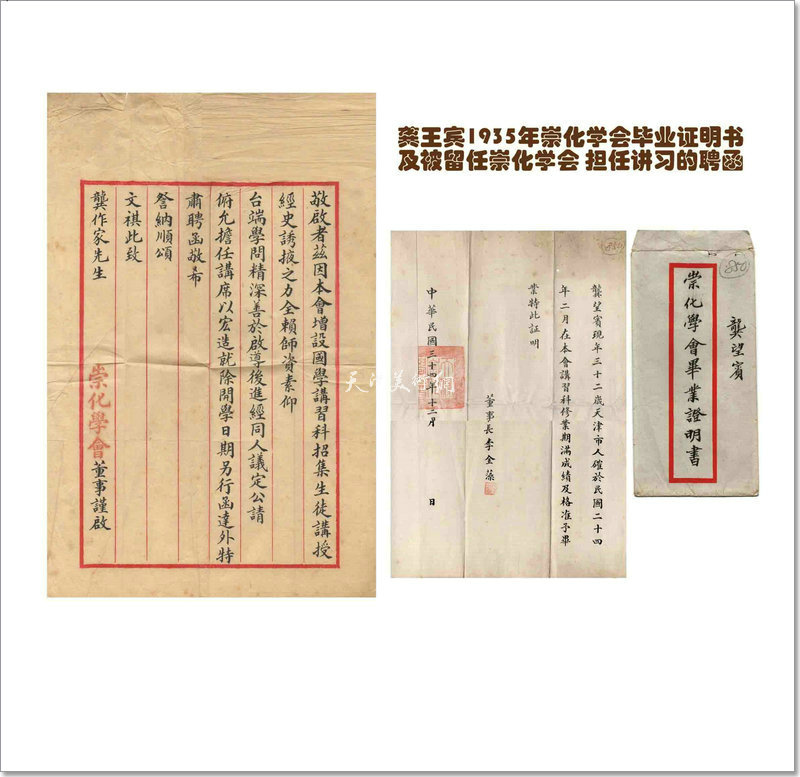 龚王宾1935年崇化学会毕业证明书
及被留任崇化学会 担任讲习的聘函
敬啟者茲因本會增設國學講習科招集生徒講授
經史誘掖之力全賴師資素仰
台端學問精深善於啟導後進經同人議定公請
俯允擔任講席以宏造就除開學日期另行函達外特
肅聘函敬希
詧納順頌
文祺此致
龔作家先生
崇化學會董事謹啟
龔望賓現年三十二歲天津市人確於民國二十四
年二月在本會講習科修業期滿成績及格准予畢
業特此証明
董事長李金藻
中華民國三十四年十二月 日
龔望賓
崇化學會畢業證明書
天津美術網